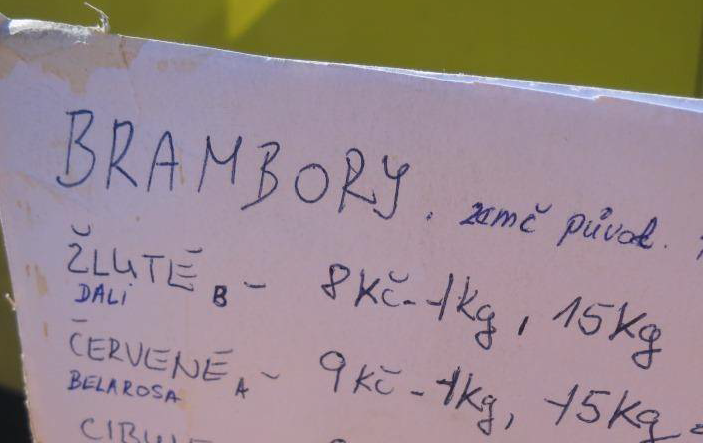 BRAMBORY. země původ.
ŽLUTÉ B - 8Kč-1kg, 15kg
DALI
ČERVENÉ A - 9Kč-1kg, 15kg
BELAROSA